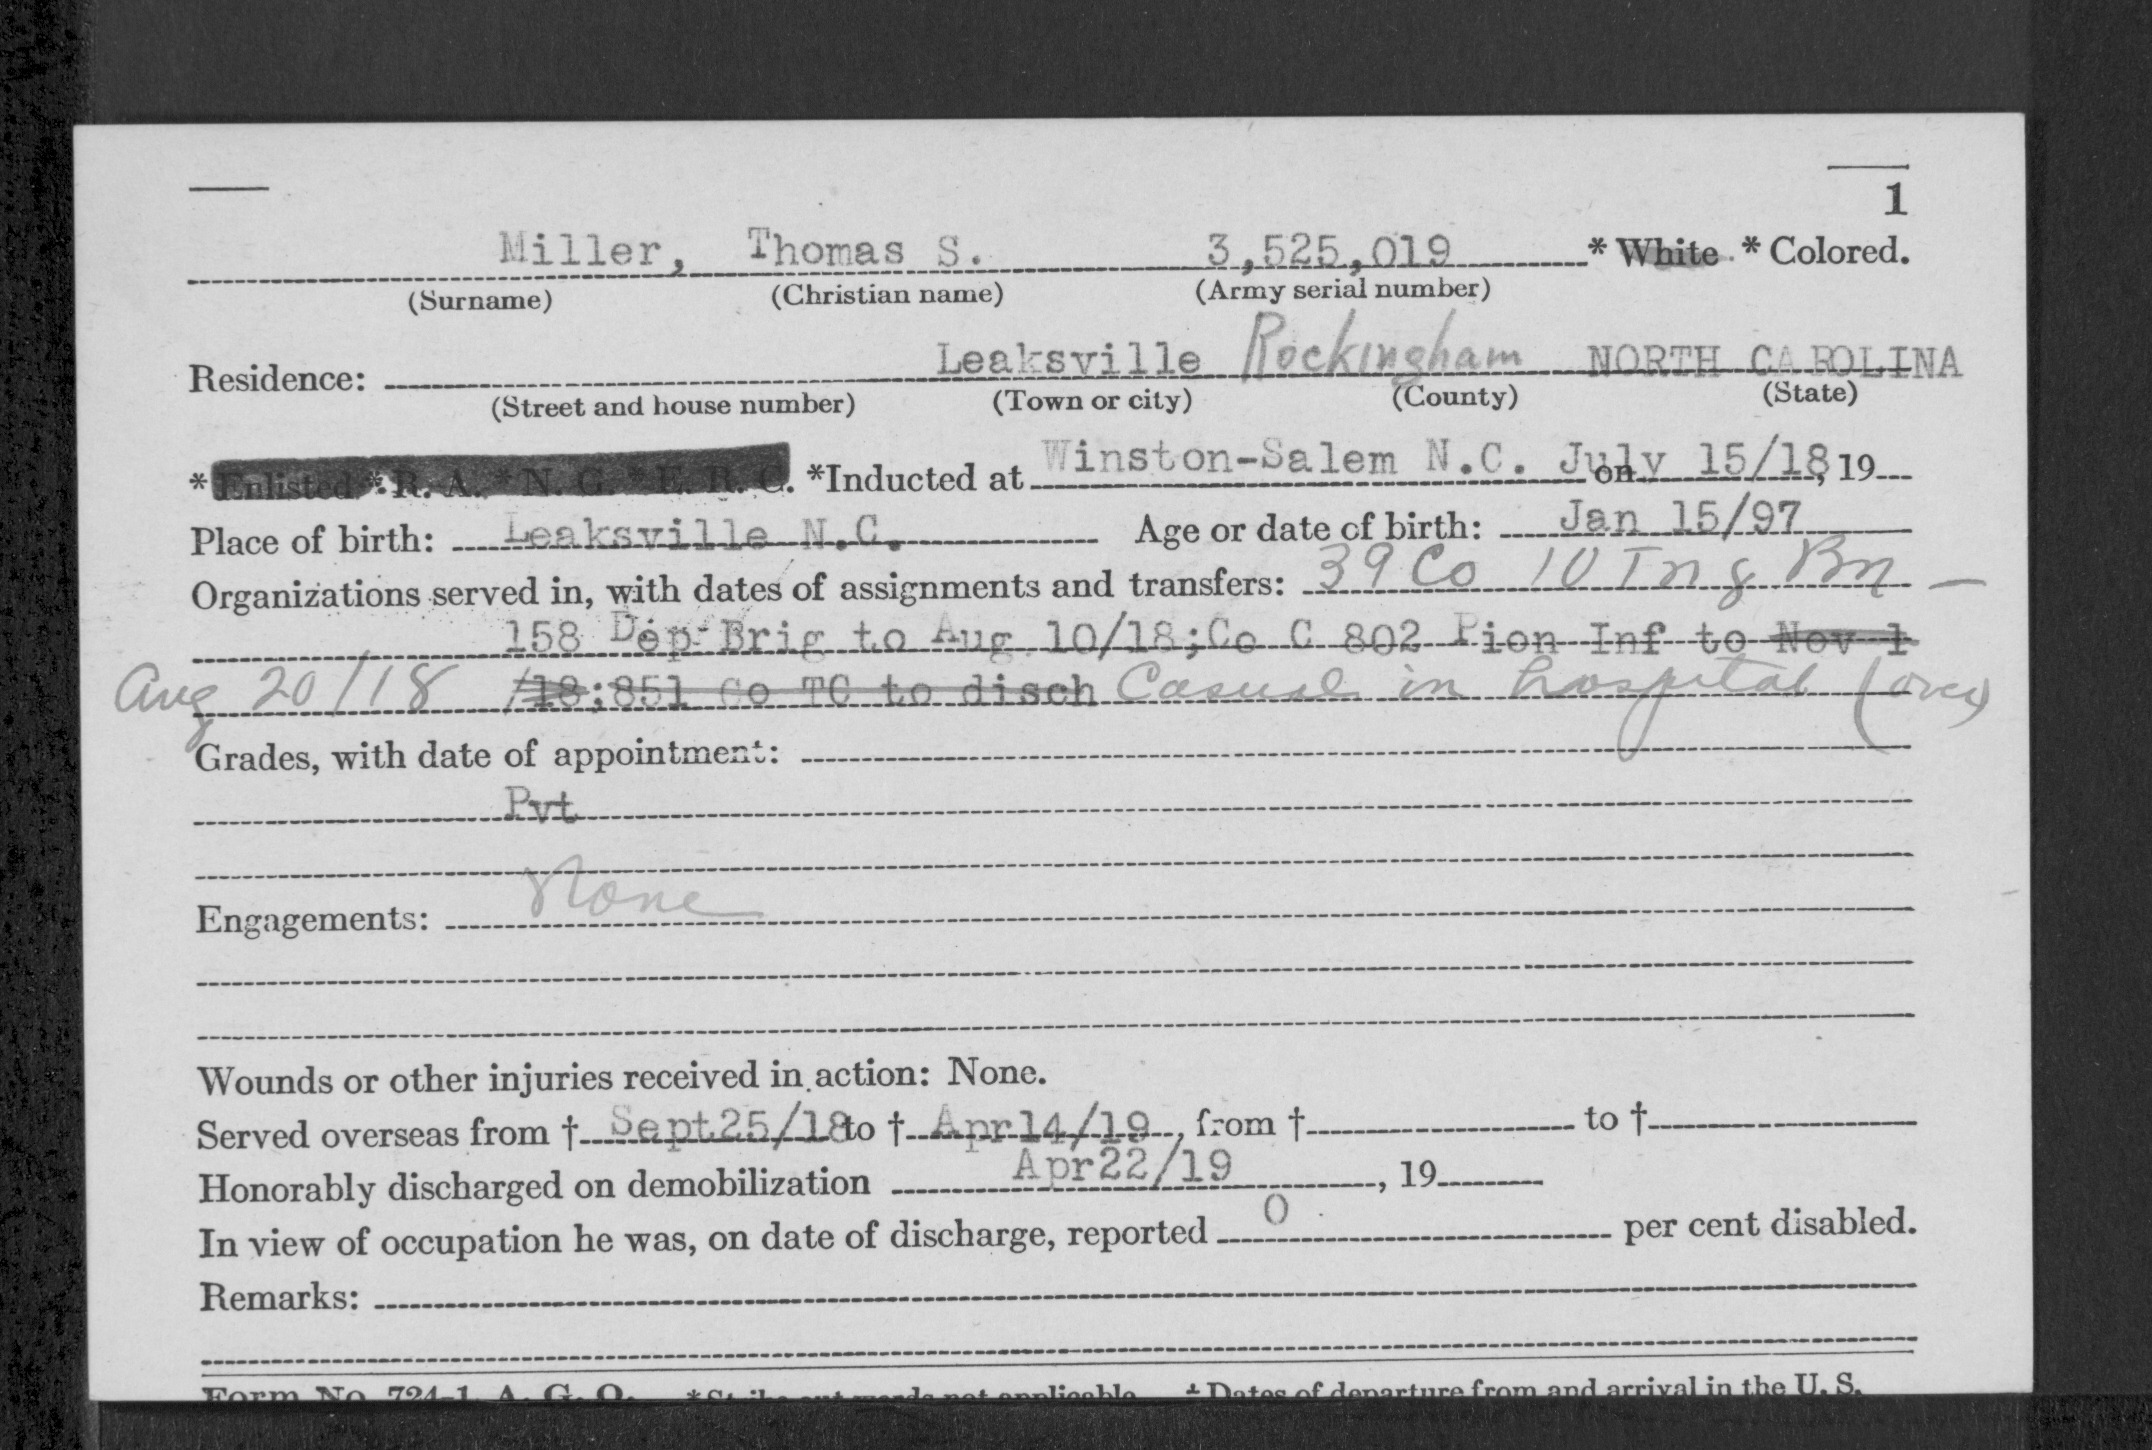 1
Miller, Thomas S. 3,525,019 * White * Colored.
(Surname) (Christian name) (Army serial number)
Residence: Leaksville Rockingham NORTH CAROLINA
(Street and house number) (Town or city) (County) (State)
* Enlisted * R. A. * N. G. * E. R. C. *Inducted at Winston-Salem N.C. on July 15/18, 19
Place of birth: Leaksville N.C. Age or date of birth: Jan 15/97
Organizations served in, with dates of assignments and transfers: 39 Co 10 Tng Bn –
158 Dep Brig to Aug 10/18; Co C 802 Pion Inf to Nov 1
Aug 20/18 /18; 851 Co TC to disch Casual in hospital (over)
Grades, with date of appointment:
Pvt
Engagements: None
Wounds or other injuries received in action: None.
Served overseas from † Sept 25/18 to † Apr 14/19, from † to †
Honorably discharged on demobilization Apr 22/19, 19
In view of occupation he was, on date of discharge, reported 0 per cent disabled.
Remarks:
Form No. 724-1, A. G. O. *Strike out words not applicable. † Dates of departure from and arrival in the U. S.